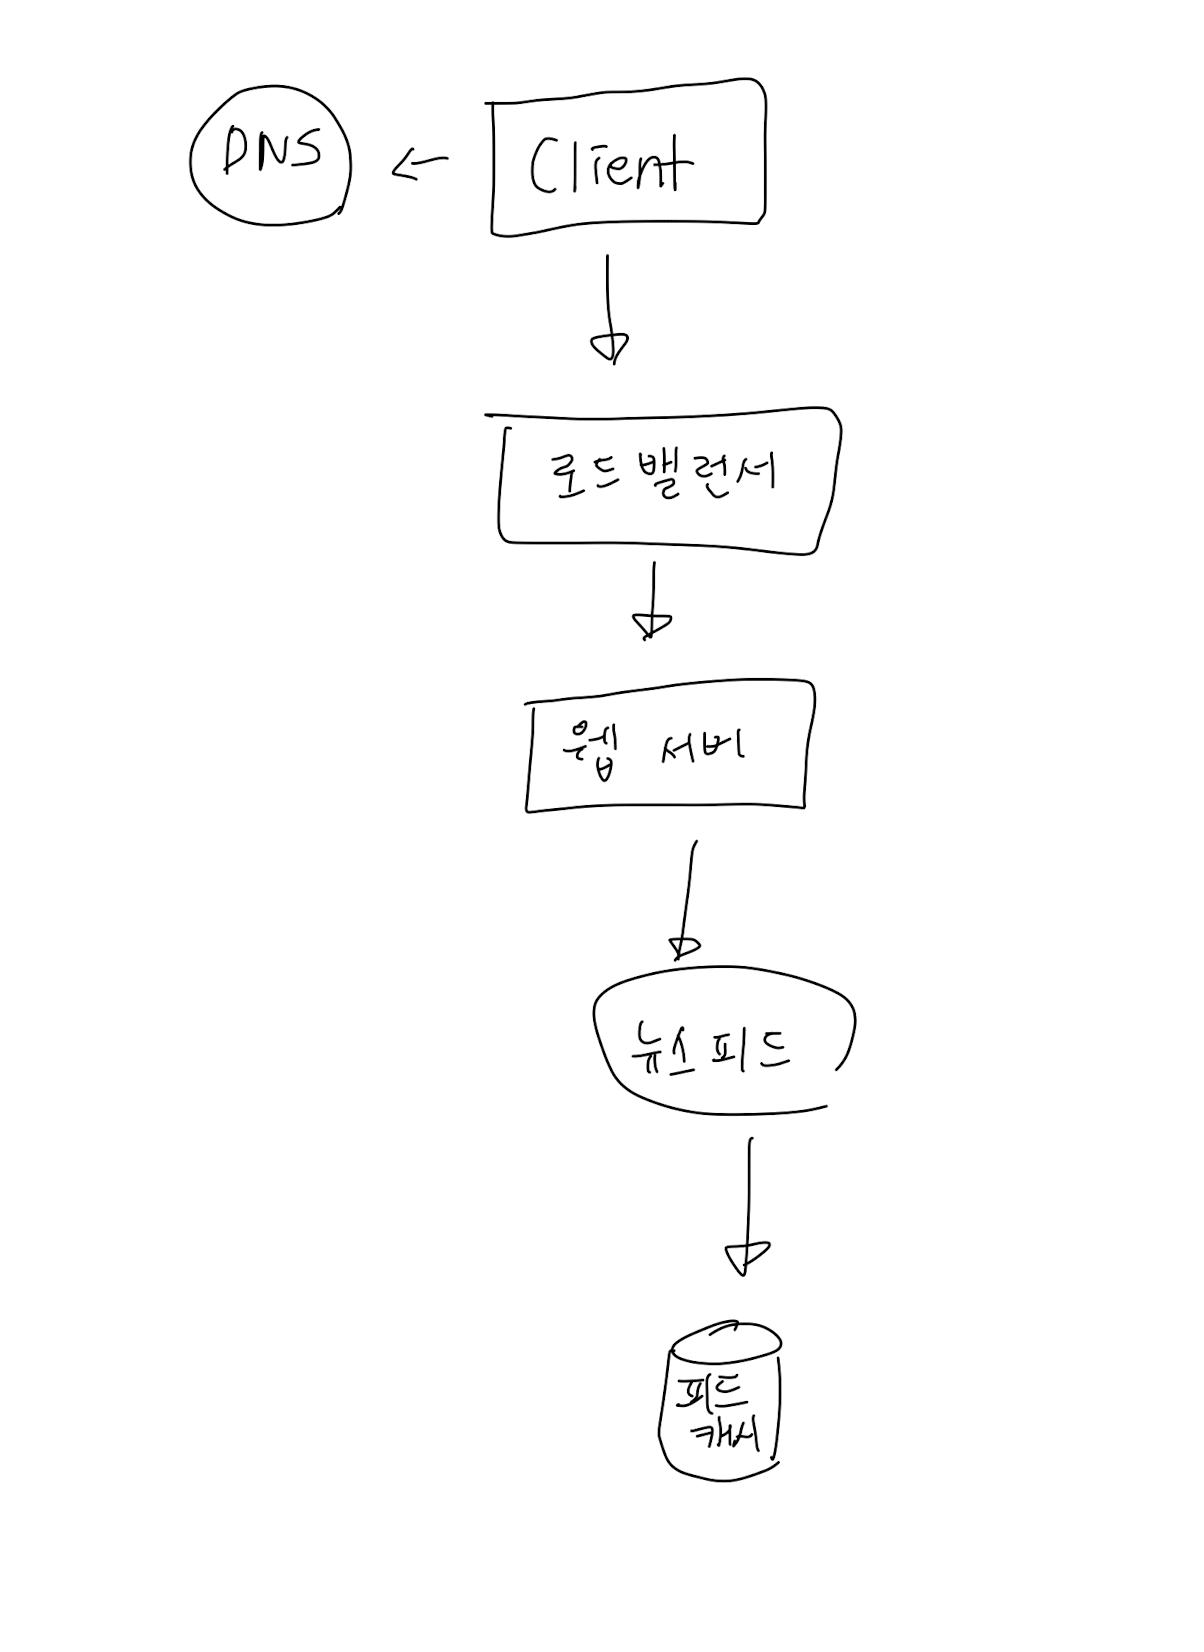 DNS
Client
로드 밸런서
웹 서버
뉴스피드
피드
캐시